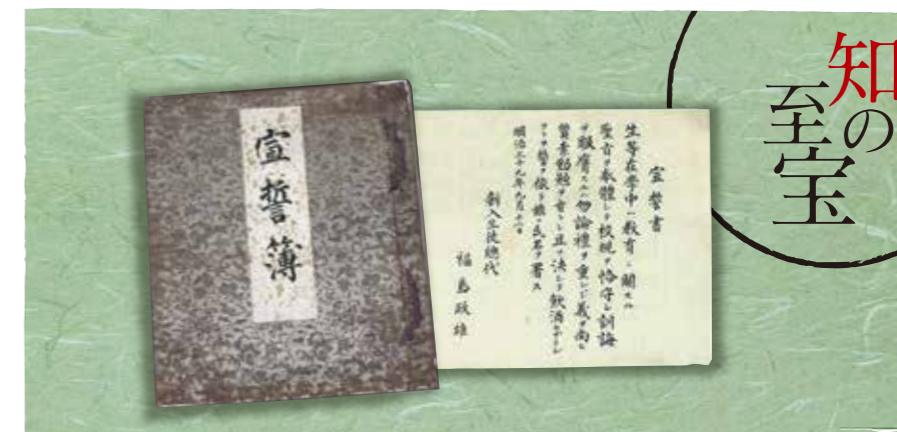 知の
至宝
宣誓簿
宣誓書
生等在學中ハ教育ニ關スル
聖旨ヲ奉體シテ校規ヲ恪守シ訓誨
ヲ服膺スルハ勿論禮ヲ重シ義ヲ尚ヒ
質素勤勉ヲ旨トシ且ツ決シテ飲酒
コトヲ誓フ依テ茲ニ氏名ヲ署ス
明治三十九年九月
新入生徒總代
福島政雄